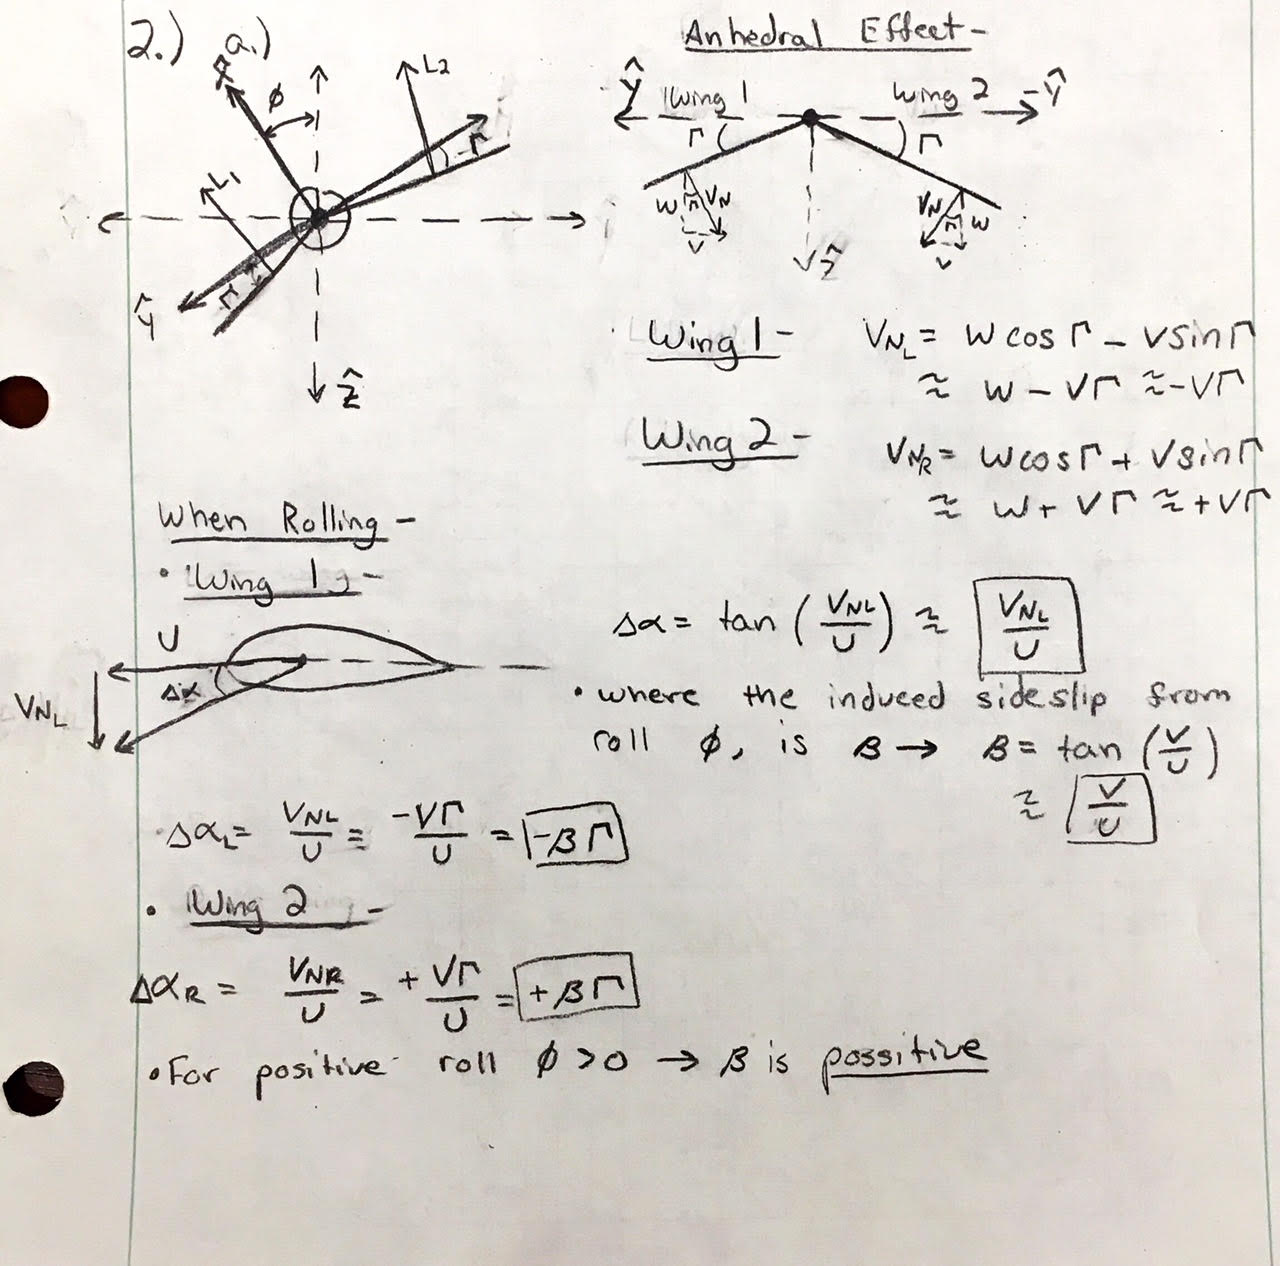 2.) a.)
Anhedral Effect-
x̂ φ L2
ŷ Wing 1 Wing 2 -ŷ
Γ Γ
-Γ
L1
W Γ VN
V
VN Γ W
V
ẑ
Γ
ŷ
ẑ
Wing 1 - VNL = W cos Γ - V sin Γ
≈ W - VΓ ≈ -VΓ
Wing 2 - VNR = W cos Γ + V sin Γ
≈ W + VΓ ≈ +VΓ
When Rolling -
• Wing 1 -
U
Δα
VNL
Δα = tan (VNL/U) ≈ VNL/U
• where the induced sideslip from
roll φ, is β → β = tan (V/U)
≈ V/U
ΔαL = VNL/U = -VΓ/U = -βΓ
• Wing 2 -
ΔαR = VNR/U = +VΓ/U = +βΓ
• For positive roll φ > 0 → β is possitive